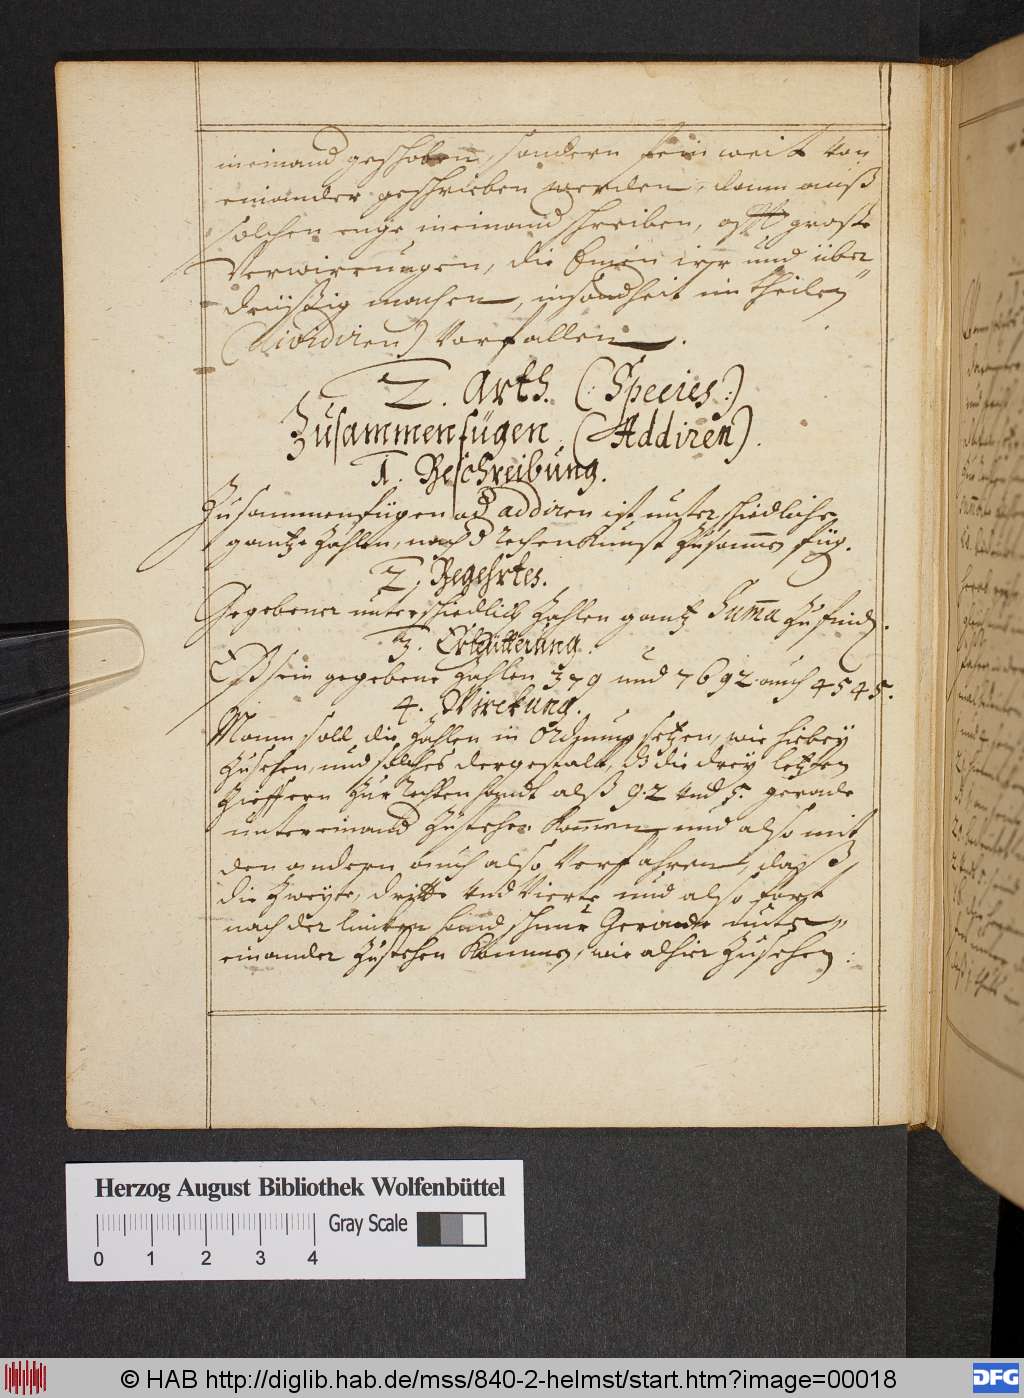 ineinand geschoben, sondern fein weit von
einander geschrieben werden, dann auß
solchen enge ineinand schreiben, offt große
Verwirrungen, die Einen irr und über
drüßig machen, insondheit im theilen
(dividiren) Vorfallen.
2. Arth. (: Species :)
Zusammenfügen (Addiren).
1. Beschreibung.
Zusammenfügen od addiren ist unterschiedliche
gantze Zahlen, nach d rechenkunst zusamen füg.
2. Begehrtes.
Gegebener unterschiedlich Zahlen gantz Suma zu find.
3. Erläutterung.
Eß sein gegebene Zahlen 379 und 7692 auch 4545.
4. Wirckung.
Mann soll die Zahlen in Ordnung setzen, wie hiebey
zusehen, und solches dergestalt, dz die drey letzten
Zieffern zur rechten handt alß 9.2 und 5. gerade
untereinand zustehen kommen und also mit
den andern auch also Verfahren, daß
die zweyte, dritte und Vierte und also fort
nach der lincken hand schnur Gerade unter
einander zustehen kommen, wie alhier zusehen :
Herzog August Bibliothek Wolfenbüttel
Gray Scale
0 1 2 3 4
© HAB http://diglib.hab.de/mss/840-2-helmst/start.htm?image=00018
DFG